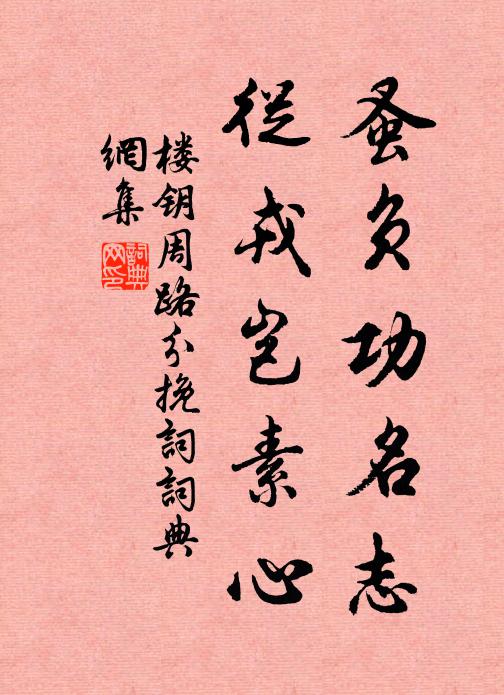 蚤负功名志
從戎岂素心
楼钥周路分挽詞詞典
網集
詞典
网印